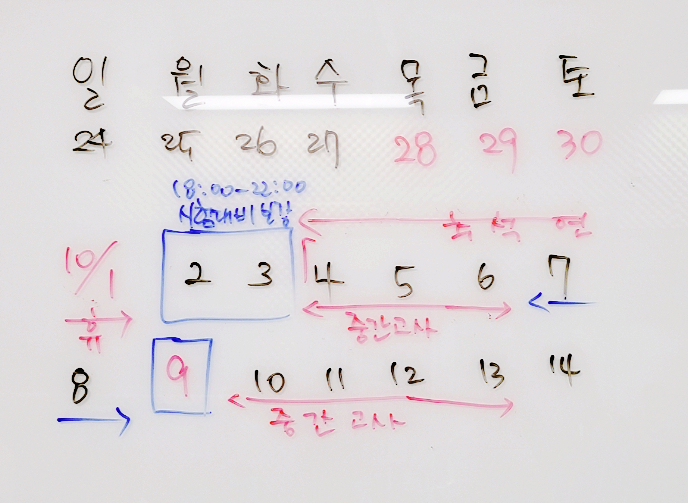 일 월 화 수 목 금 토
24 25 26 27 28 29 30
18:00-22:00
시험대비 보강
추석 연
10/1 2 3 4 5 6 7
휴
중간고사
8 9 10 11 12 13 14
중간고사